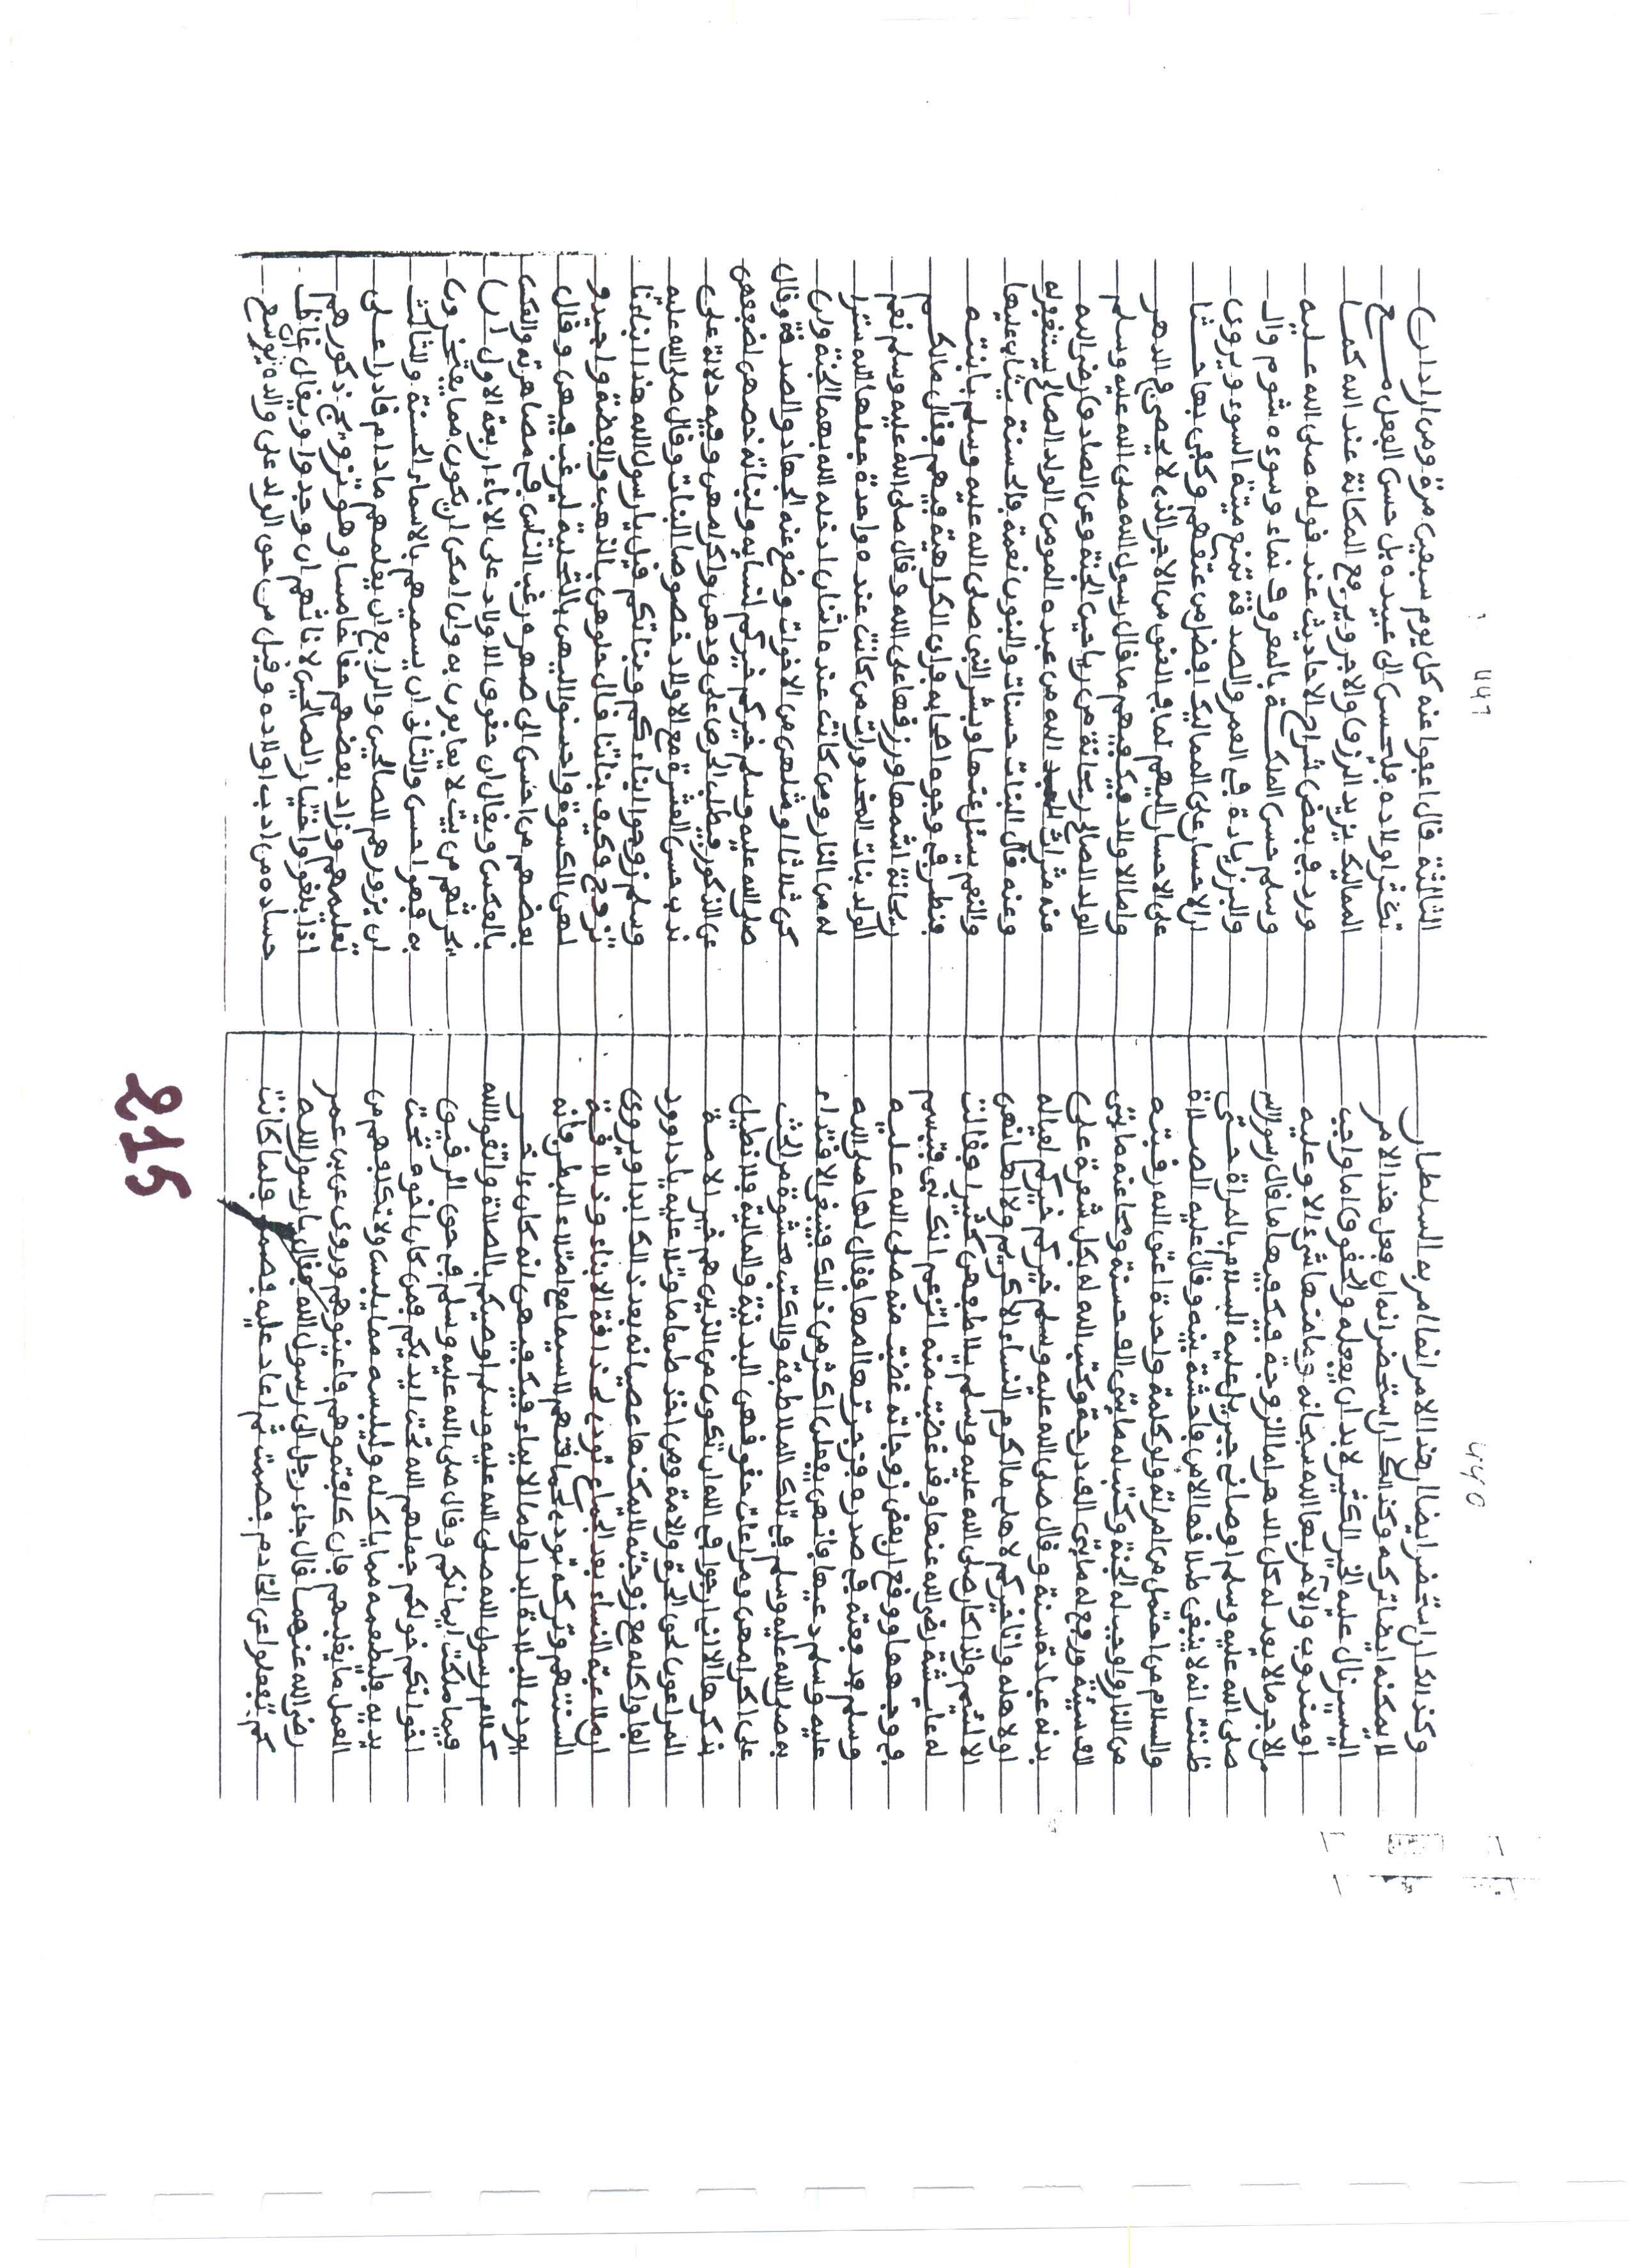 ٤٤٥
وكذا لكان استحضر ايضا ان هذا الامر انما امر به السلطان
لا يمكنه ايضا تركه وكذا لكان استحضر انه ان فعل هذا الامر
اليسير نال عليه الخير الكثير لا بد ان يفعله والحقوق اما واجب
او مندوب والامر بها الله سبحانه وما منها شيء الا وعليه
من الاجر ما لا يعد له كل الدهر اما الزوجة فيكفيها ما قال رسول الله
صلى الله عليه وسلم اوصاني جبريل عليه السلام بالمراة حتى
ظننت انه لا ينبغي طلاقها الا من فاحشة بينه وقال عليه الصلاة
والسلام من احتمل من امراته ولو كلمة واحدة اعتق الله رقبته
من النار واوجب له الجنة وكتب له مايتي الف حسنة ومحا عنه مايتي
الف سيئة ورفع له مايتي الف درجة وكتب الله له بكل شعرة على
بدنه عبادة سنة وقال صلى الله عليه وسلم خيركم خيركم لعياله
او لاهله وانا خيركم لاهلي ما اكرم النساء الا كريم ولا اهانهن
الا لئيم ولذا كان صلى الله عليه وسلم يلاطفهن كثيرا وقالت
له عايشة رضي الله عنها وقد غضبت منه انت تزعم انك نبي فتبسم
في وجهها ووقع ان بعض زوجاته غضبت منه صلى الله عليه
وسلم فدفعته في صدره فزجرتها امها فقال لها صلى الله
عليه وسلم دعيها فانهن يفعلن اكثر من ذالك فينبغي الاقتداء
به صلى الله عليه وسلم في تلك الملاطفة والكتب محشوة من الحث
على اكرامهن ومراعات حقوقهن البدنية والمالية فلا نطيل
بذكرها الا ان ارجوا من الله ان تكون من الذين هم خير الامة
المراعون لحق الحرة والامة ومن اخذ طعاما وتلا عليه يا داوود
الفا واكله مع زوجته لا يمكنها عصيانه بعد ذالك ابدا ويروى
ان ملاعبة النساء بعد الجماع تورث لحذاقة الابناء وذلاقة
السنتهم وتركه تورث لحماقتهم لا سيما مع امتلاء البطن فانه
يورث للبلادة ابدا واما الاماء فيكفي فيهن انه كان ءاخر
كلام رسول الله صلى الله عليه وسلم اوصيكم بالصلاة واتقوا الله
فيما ملكت ايمانكم وقال صلى الله عليه وسلم في حق الرقيق
اخوانكم خولكم جعلهم الله تحت ايديكم فمن كان اخوه تحت
يديه فليطعمه مما ياكله وليلبسه مما يلبس ولا تكلفهم من
العمل ما يغلبهم فان كلفتموهم فاعينوهم وروي عن ابن عمر
رضي الله عنهما قال جاء رجل الى رسول الله فقال يا رسول الله
كم تعفوا عن الخادم فصمت ثم اعاد عليه فصمت فلما كانت
٤٤٦
الثالثة قال اعفوا عنه كل يوم سبعين مرة ومن اراد ان
تكثر اولاده فليحسن الى عبيده بل حسن الفعل مع
المماليك يزيد الرزق والاجر ويرفع المكانة عند الله كما
ورد في بعض شراح الاحاديث عند قوله صلى الله عليه
وسلم حسن الملكة بالمعروف نماء وسوءه شوم وال
والبر زيادة في العمر والصدقة تمنع ميتة السوء ويروى
ان الاحسان على المماليك افضل من عتقهم وكفى بها حثا
على الاحسان اليهم لما في العتق من الاجر الذي لا يحصى في الدهر
واما الاولاد فيكفيهم ما قال رسول الله صلى الله عليه وسلم
الولد الصالح ريحانة من رياحين الجنة وعن الصادق رضي الله
عنه ميراث الله من عبده المومن الولد الصالح يستغفر له
وعنه قال البنات حسنات والبنون نعمة فالحسنة يثاب عليها
والنعم يسئل عنها وبشر النبي صلى الله عليه وسلم بابنته
فنظر في وجوه اصحابه فراى الكراهة فيهم فقال ما لكم
ريحانة اشمها ورزقها على الله وقال صلى الله عليه وسلم نعم
الولد بنات المخدورات من كانت عنده واحدة جعلها الله سترا
له من النار ومن كانت عنده اثنتان ادخله الله بهما الجنة وان
كن ثلاثا او مثلهن من الاخوات وضع عنه الجهاد والصدقة وقال
صلى الله عليه وسلم خيركم خيركم لنسايه ولبناته خصهن لضعفهن
عن الذكور فطلب الحرص على ودهن واكرامهن وفيه دلالة على
ندب حسن العشرة مع الاولاد خصوصا البنات وقال صلى الله عليه
وسلم زوجوا ابناءكم وبناتكم قيل يا رسول الله هذا ابناءنا
نزوج فكيف بناتنا قال حلوهن بالذهب والفضة واجيدوا
لهن الكسوة واحسنوا اليهن بالنحلة ليرغب فيهن وقال
بعضهم من احسن الى صهره رغب الناس في مصاهرته والعكس
بالعكس ويقال ان حقوق الاولاد على الاباء اربعة الاول ان
يحرثهم من بيت لا يعابون به وان امكن ان يكون مما يفتخرون
به فهو احسن والثاني ان يسميهم بالاسماء الحسنة والثالث
ان يزورهم الصالحين والرابع ان يعلمهم ما دام قادرا على
تعليمهم وزاد بعضهم خامسا وهو تزويج ذكورهم
اذا بلغوا واختيار الصالحين لاناثهم ان وجدوا ويقال غاظ
حساده من ادب اولاده وقيل من حق الولد على والده ان يوسع
215